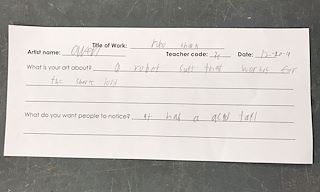 Title of Work: robo shark
Artist name: Teacher code: Date: 12-20-
What is your art about? a robot suit that works for
the shark lord
What do you want people to notice? it has a acid tail